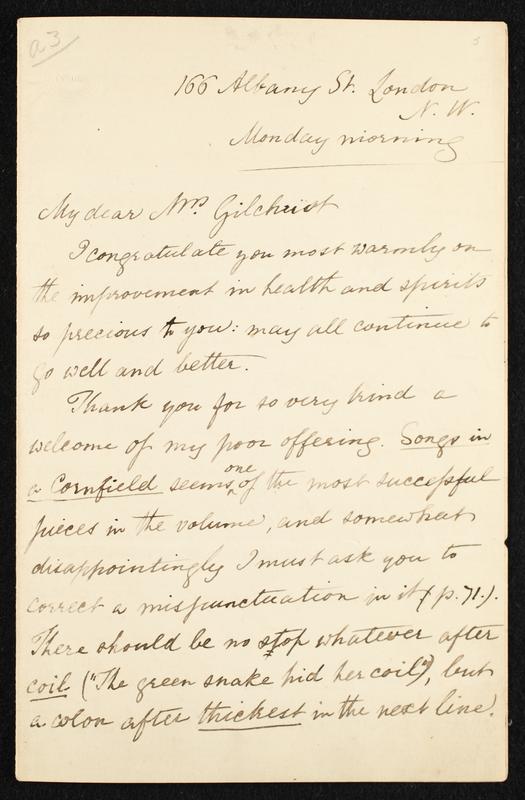 a3
5
166 Albany St. London
N. W.
Monday morning
My dear Mrs. Gilchrist
I congratulate you most warmly on
the improvement in health and spirits
so precious to you: may all continue to
go well and better.
Thank you for so very kind a
welcome of my poor offering. Songs in
a Cornfield seems one of the most successful
pieces in the volume, and somewhat
disappointingly I must ask you to
correct a mispunctuation in it (p. 71.).
There should be no stop whatever after
coil ("The green snake hid her coil"), but
a colon after thickest in the next line.